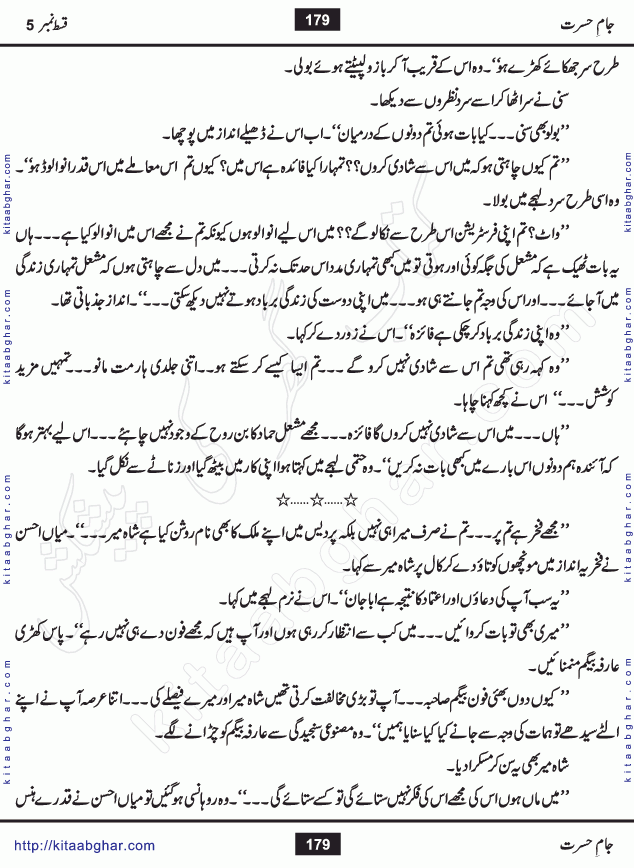 جامِ حسرت 179 قسط نمبر 5
طرح سر جھکائے کھڑے ہو‘‘۔ وہ اس کے قریب آ کر بازو لپیٹتے ہوئے بولی۔
سنی نے سر اٹھا کر اسے سرد نظروں سے دیکھا۔
’’بولو بھی سنی ۔۔۔ کیا بات ہوئی تم دونوں کے درمیان‘‘۔ اب اس نے ڈھیلے انداز میں پوچھا۔
’’تم کیوں چاہتی ہو کہ میں اس سے شادی کروں؟؟ تمہارا کیا فائدہ ہے اس میں؟ کیوں تم اس معاملے میں اس قدر انوالوڈ ہو‘‘۔
وہ اسی طرح سرد لہجے میں بولا۔
’’واٹ؟ تم اپنی فرسٹریشن اس طرح سے نکالو گے؟؟ میں اس لیے انوالو ہوں کیونکہ تم نے مجھے اس میں انوالو کیا ہے ۔۔۔ ہاں
یہ بات ٹھیک ہے کہ مشعل کی جگہ کوئی اور ہوتی تو میں بھی تمہاری مدد اس حد تک نہ کرتی ۔۔۔ میں دل سے چاہتی ہوں کہ مشعل تمہاری زندگی
میں آ جائے ۔۔۔ اور اس کی وجہ تم جانتے ہی ہو ۔۔۔ میں اپنی دوست کی زندگی برباد ہوتے نہیں دیکھ سکتی ۔۔۔‘‘۔ انداز جذباتی تھا۔
’’وہ اپنی زندگی برباد کر چکی ہے فائزہ‘‘۔ اس نے زور دے کر کہا۔
’’وہ کہہ رہی تھی تم اس سے شادی نہیں کرو گے ۔۔۔ تم ایسا کیسے کر سکتے ہو۔۔ اتنی جلدی ہار مت مانو ۔۔۔ تمہیں مزید
کوشش ۔۔۔‘‘ اس نے کچھ کہنا چاہا۔
’’ہاں ۔۔۔ میں اس سے شادی نہیں کروں گا فائزہ ۔۔۔ مجھے مشعل حماد کا بن روح کے وجود نہیں چاہئے ۔۔۔ اس لیے بہتر ہو گا
کہ آئندہ ہم دونوں اس بارے میں کبھی بات نہ کریں‘‘۔ وہ حتمی لہجے میں کہتا ہوا اپنی کار میں بیٹھ گیا اور زناٹے سے نکل گیا۔
☆......☆......☆
’’مجھے فخر ہے تم پر ۔۔۔ تم نے صرف میرا ہی نہیں بلکہ پردیس میں اپنے ملک کا بھی نام روشن کیا ہے شاہ میر ۔۔۔‘‘۔ میاں احسن
نے فخریہ انداز میں مونچھوں کو تاؤ دے کر کال پر شاہ میر سے کہا۔
’’یہ سب آپ کی دعاؤں اور اعتماد کا نتیجہ ہے ابا جان‘‘۔ اس نے نرم لہجے میں کہا۔
’’میری بھی تو بات کروائیں ۔۔۔ میں کب سے انتظار کر رہی ہوں اور آپ ہیں کہ مجھے فون دے ہی نہیں رہے‘‘۔ پاس کھڑی
عارفہ بیگم منمنائیں۔
’’کیوں دوں بھئی فون بیگم صاحبہ ۔۔۔ آپ تو بڑی مخالفت کرتی تھیں شاہ میر اور میرے فیصلے کی ۔۔۔ اتنا عرصہ آپ نے اپنے
الٹے سیدھے توہمات کی وجہ سے جانے کیا کیا سنایا ہمیں‘‘۔ وہ مصنوعی سنجیدگی سے عارفہ بیگم کو چڑانے لگے۔
شاہ میر بھی یہ سن کر مسکرا دیا۔
’’میں ماں ہوں اس کی مجھے اس کی فکر نہیں ستائے گی تو کسے ستائے گی ۔۔۔‘‘۔ وہ روہانسی ہو گئیں تو میاں احسن نے قدرے ہنس
جامِ حسرت 179 http://kitaabghar.com
kitaabghar.com
kitaabghar.com
kitaabghar.com
kitaabghar.com
kitaabghar.com
kitaabghar.com
kitaabghar.com
kitaabghar.com
کتاب گھر کی پیشکش
kitaabghar.com